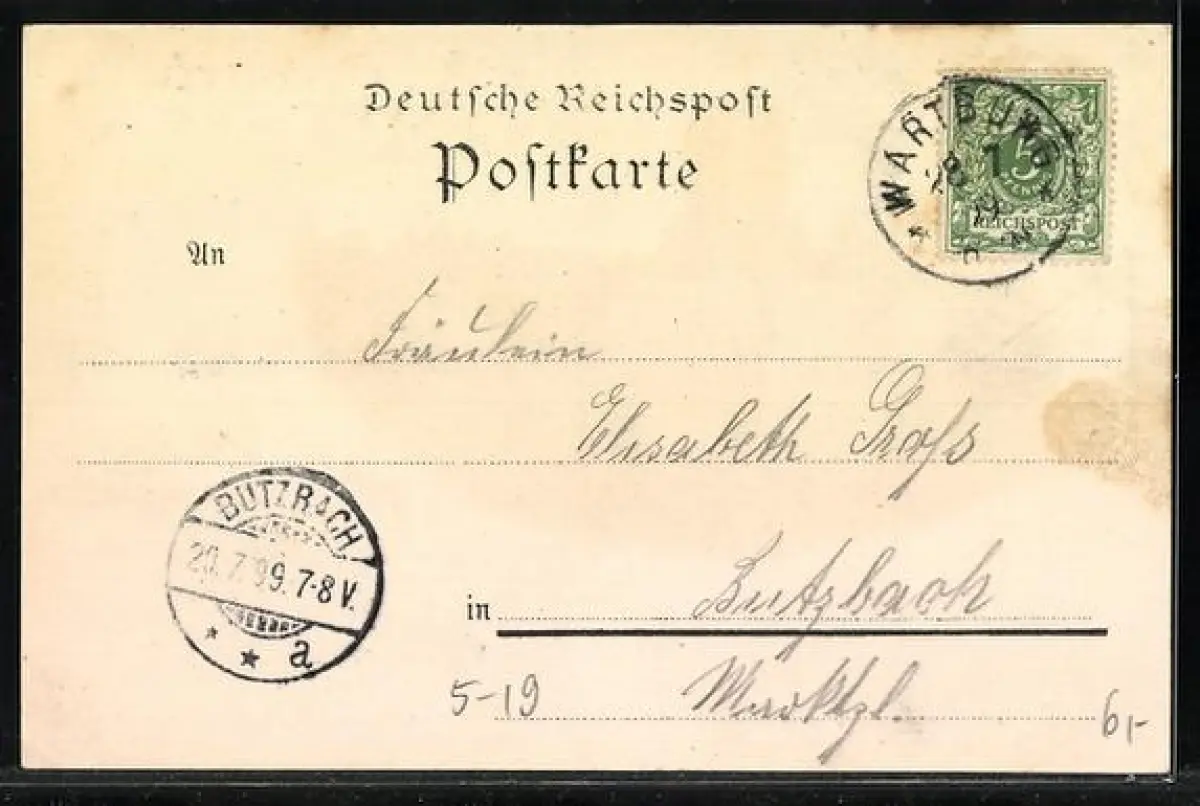 Deutsche Reichspost
Postkarte
WARTBURG
5
REICHSPOST
An
Fräulein
Elisabeth Groß
BUTZBACH
20.7.99. 7-8 V.
a
in Butzbach
5-19
Marktpl.
6,-